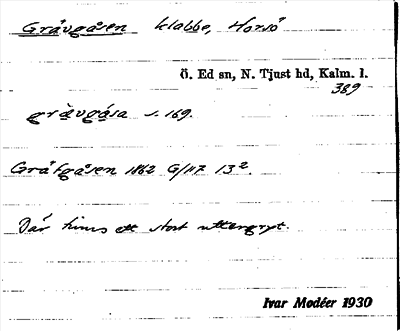 Gråvgåsen klabbe, Horsö
Ö. Ed sn, N. Tjust hd, Kalm. l.
389
gråvgåsa s. 169.
Gråfgåsen 1862 G/117 13².
Där finns ett stort uttergryt.
Ivar Modéer 1930